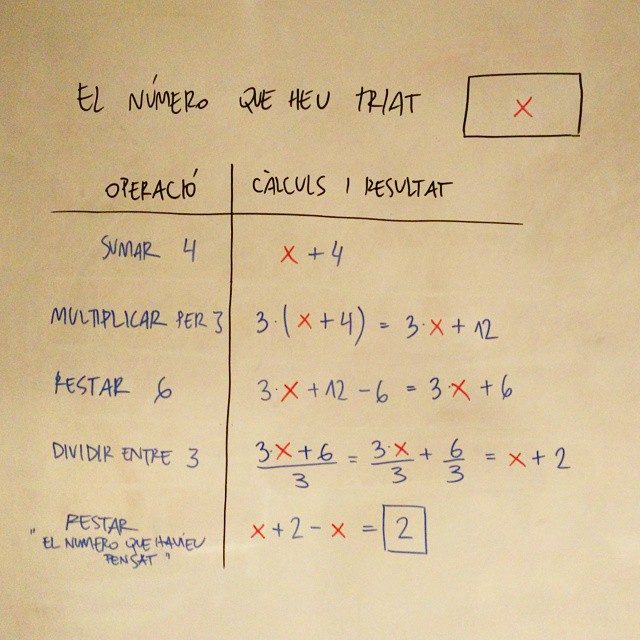 EL NÚMERO QUE HEU TRIAT x
OPERACIÓ CÀLCULS I RESULTAT
SUMAR 4 x + 4
MULTIPLICAR PER 3 3·(x + 4) = 3·x + 12
RESTAR 6 3·x + 12 - 6 = 3·x + 6
DIVIDIR ENTRE 3 (3·x + 6)/3 = 3·x/3 + 6/3 = x + 2
RESTAR x + 2 - x = 2
"EL NUMERO QUE HAVIEU
PENSAT"